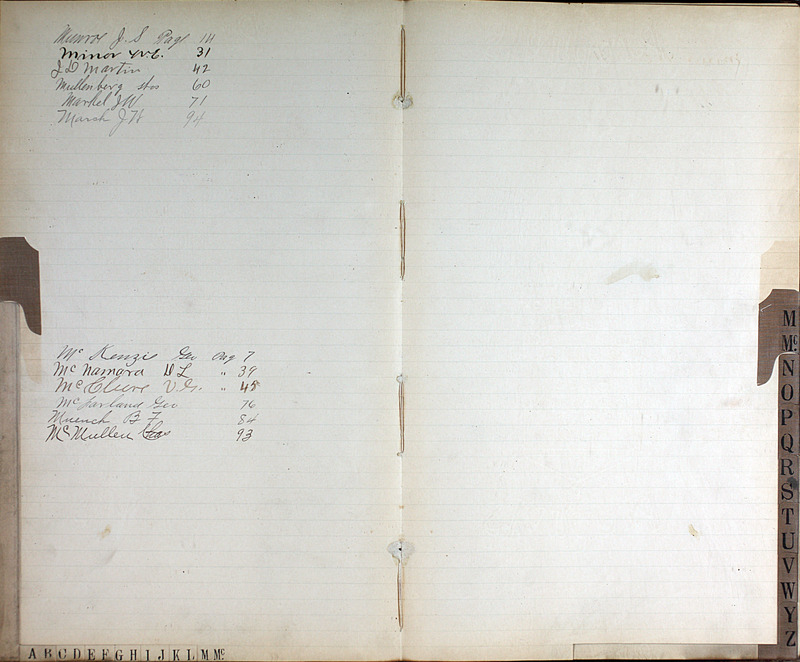 Munroe J. S Page 14
Minor 31
J D Martin 42
Mullenberg 60
Markel J W 71
March J H 94
Mc Kenzie Geo Pag 7
Mc Namara W L " 39
Mc Clure V. G. " 48
Mc Farland Geo 76
Muench B F 84
Mc Mullen 93
A B C D E F G H I J K L M Mc
M
Mc
N
O
P
Q
R
S
T
U
V
W
Y
Z